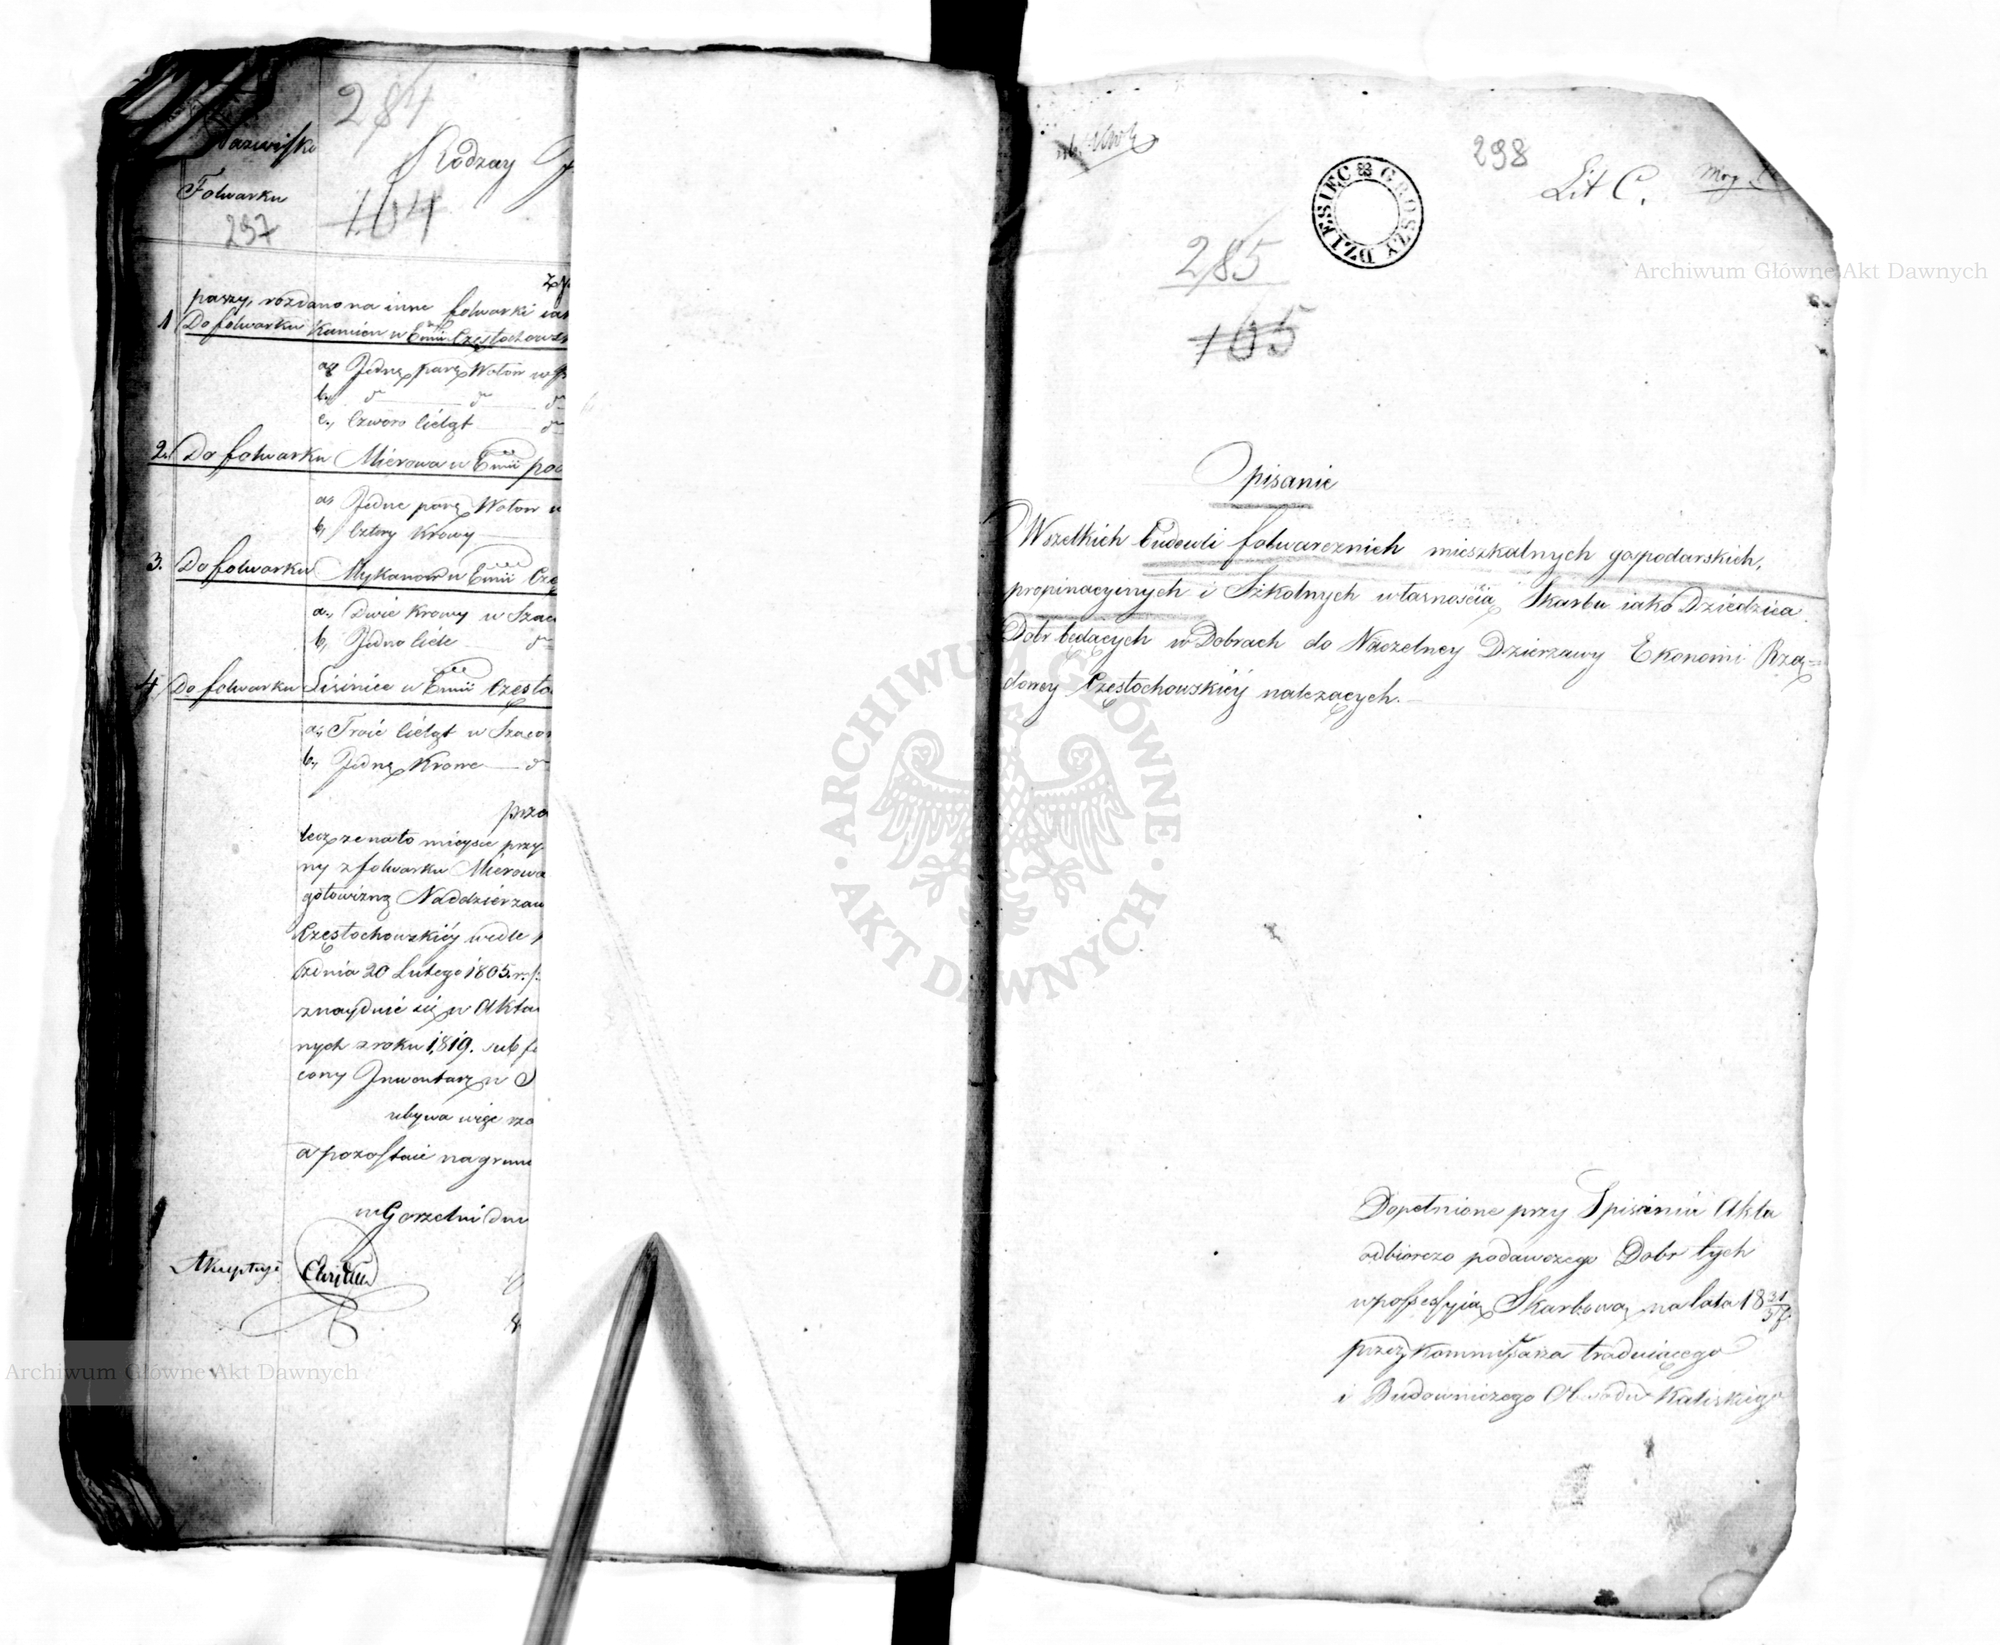 284
Nazwisko
Rodzay
Folwarku
104
297
paszy, rozdano na inne folwarki iak
1 Do folwarku Kamien w Emii Częstochows
a, Jednę parę Wołow w
b, d° d° d°
c, Czworo Cieląt d°
2. Do folwarku Mierowa w Emii
a, Jedne parę Wołow w
b, Cztery Krowy
3. Do folwarku Mykanow w Emii Czę
a, Dwie Krowy w Szac
b, Jedno Ciele d°
4 Do folwarku Lisinice w Emii Często
a, Troie Cieląt w Szaco
b, Jednę Krowe d°
prze
lecz ze na to mieysce przy
ny z folwarku Mierowa
gotowizną Naddzierzaw
Częstochowskiey wedle
dnia 20 Lutego 1805. r.
znayduie się w Akta
nych z roku 1819. sub
cony Inwentarz w
ubywa więc
a pozostaie na grun
w Gorzelni dn
Akceptuję
298
Lit C.
DZIESIEC GROSZY
285
165
Opisanie
Wszelkich budowli folwarcznich mieszkalnych gospodarskich,
propinacyinych i Szkolnych własnościa Skarbu iako Dziedzica
Dobr będących w Dobrach do Naczelney Dzierzawy Ekonomi Rzą=
dowey Częstochowskiey nalezących.
Dopełnione przy Spisaniu Akta
odbiorczo podawczego Dobr tych
w possessyią Skarbową na lata 18 31/37
przez Kommissarza traduiącego
i Budowniczego Obwodu Kaliskiego
ARCHIWUM GŁÓWNE
AKT DAWNYCH
Archiwum Główne Akt Dawnych
Archiwum Główne Akt Dawnych